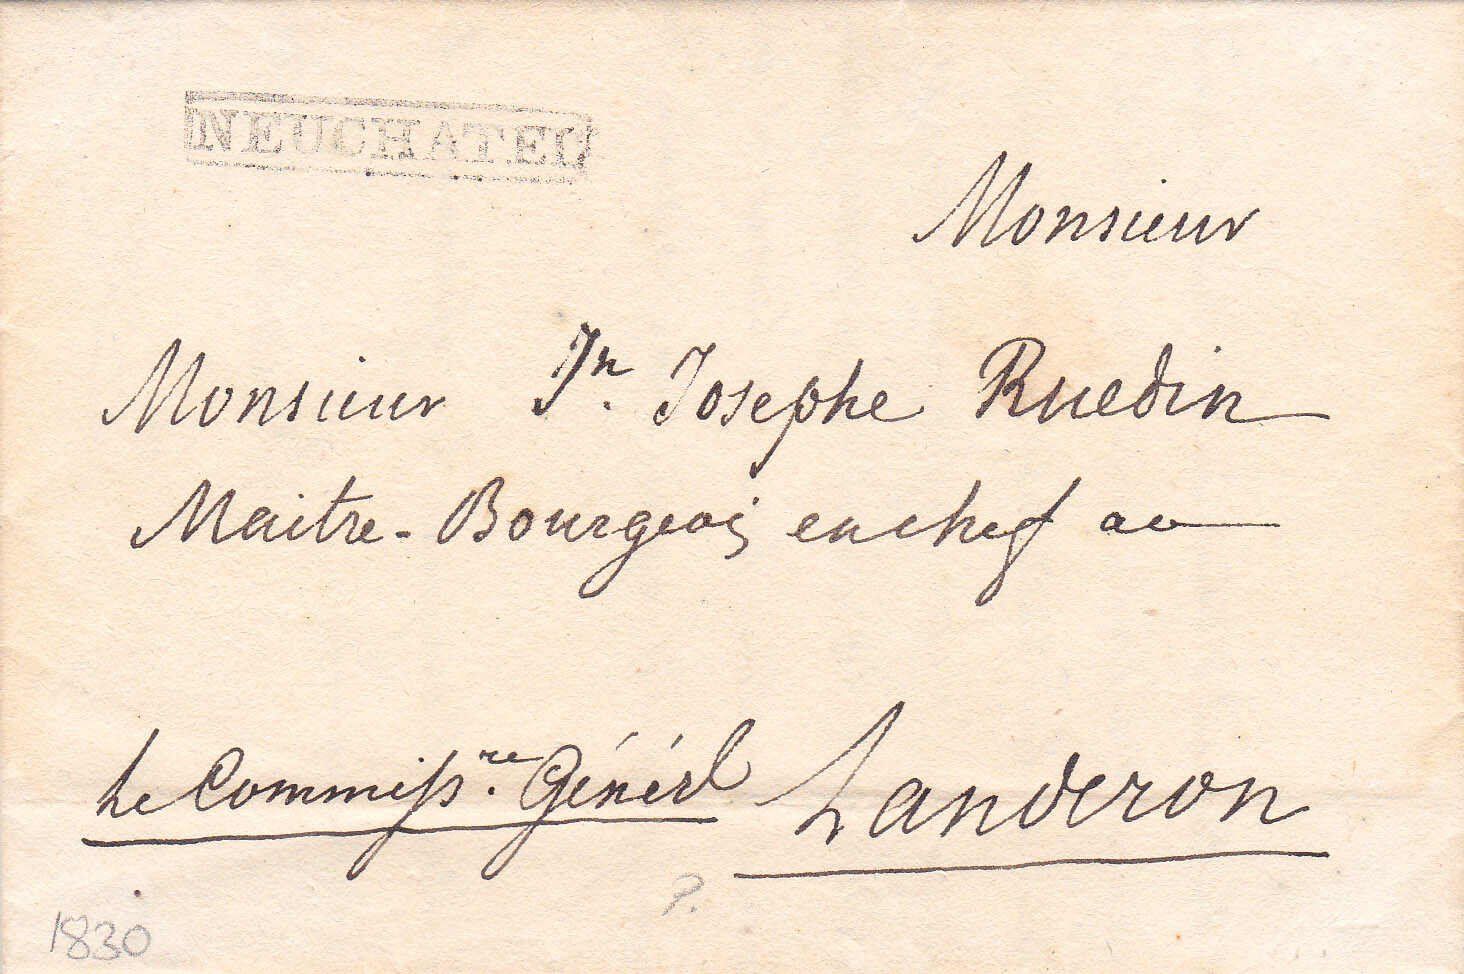 NEUCHATEL
Monsieur
Monsieur Jn. Josephe Ruedin
Maitre-Bourgeois en chef au
Le Commissre. Générl Landeron
P.
1830